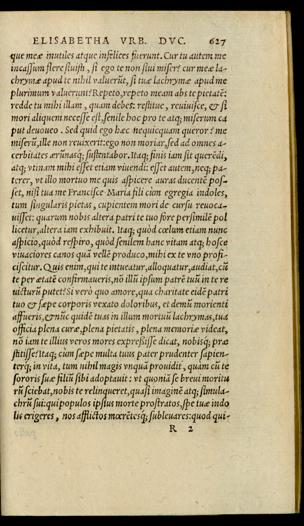 ELISABETHA VRB. DVC. 627
que meæ inutiles atque infelices fuerunt. Cur tu autem me
incassum flere sivisti, si ego te non sivi mori? cur meæ la-
chrymæ apud te nihil valuerūt, si tuæ lachrymæ apud me
plurimum valuerunt? Repeto, repeto meam abs te pietatē:
redde tu mihi illam, quam debes: restitue, reuiuisce, & si
mori aliquem necesse est, senile hoc pro te atq; miserum ca
put deuoueo. Sed quid ego hæc nequicquam queror? me
miserū, ille non reuixerit: ego non moriar, sed ad omnes a-
cerbitates ærūnasq; sustentabor. Itaq; finis iam sit querēdi,
atq; vtinam mihi esset etiam viuendi: esset autem, neq; pa-
terer, vt illo mortuo me quis aspicere auras ducentē pos-
set, nisi tua me Francisce Maria fili cùm egregia indoles,
tum singularis pietas, cupientem mori de cursu reuoca-
uisset: quarum nobis altera patri te tuo fore persimilē pol
licetur, altera iam exhibuit. Itaq; quòd cœlum etiam nunc
aspicio, quòd respiro, quòd senilem hanc vitam atq; hosce
viuaciores canos quā vellē produco, mihi ex te vno profi-
ciscitur. Quis enim, qui te intueatur, alloquatur, audiat, cū
te per ætatē confirmaueris, nō illū ipsum patrē tuū in te re
uicturū putet? Si verò quo amore, qua charitate eidē patri
tuo & sæpe corporis vexato doloribus, et demū morienti
affueris, & nūc quidē tuas in illum mortuū lachrymas, tua
officia plena curæ, plena pietatis, plena memoriæ videat,
nō iam te illius veros mores expressisse dicat, nobisq; præ
stitisse? Itaq; cùm sæpe multa tuus pater prudenter sapien-
terq; in vita, tum nihil magis vnquā prouidit, quàm cū te
sororis suæ filiū sibi adoptauit: vt quoniā se breui moritu
rū sciebat, nobis te relinqueret, quasi imaginē atq; simula-
chrū sui: qui populos ipsius morte prostratos, spe tuæ indo
lis erigeres, nos afflictos mœrētesq; subleuares: quod qui-
R 2